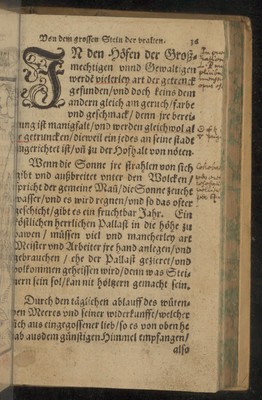 Von dem grossen Stein der vralten. 36
IN den Höfen der Groß-
mechtigen vnnd Gewaltigen
werdē vielerley art der getrenck
gefunden/vnd doch keins dem
andern gleich am geruch/farbe
vnd geschmack/ denn jre berei-
tung ist manigfalt/vnd werden gleichwol al
le getruncken/dieweil ein jedes an seine stadt
zugerichtet ist/vñ zu der Hoßhalt von nöten.
Wenn die Sonne jre stralen von sich
gibt vnd außbreitet vnter den Wolcken/
spricht der gemeine Mañ/die Sonne zeucht
wasser/vnd es wird regnen/vnd so das offter
geschicht/gibt es ein fruchtbar Jahr. Ein
köstlichen herrlichen Pallast in die höhe zu
bawen/ müssen viel vnd mancherley art
Meister vnd Arbeiter jre hand anlegen/vnd
gebrauchen/ ehe der Pallast gezieret/vnd
volkommen geheissen wird/denn was Stei-
nern sein sol/kan nit höltzern gemacht sein.
Durch den täglichen ablauff des wüten-
den Meeres vnd seiner widerkunfft/welcher
sich aus eingegossener lieb/so es von oben he
rab aus dem günstigen Himmel empfangen/
also